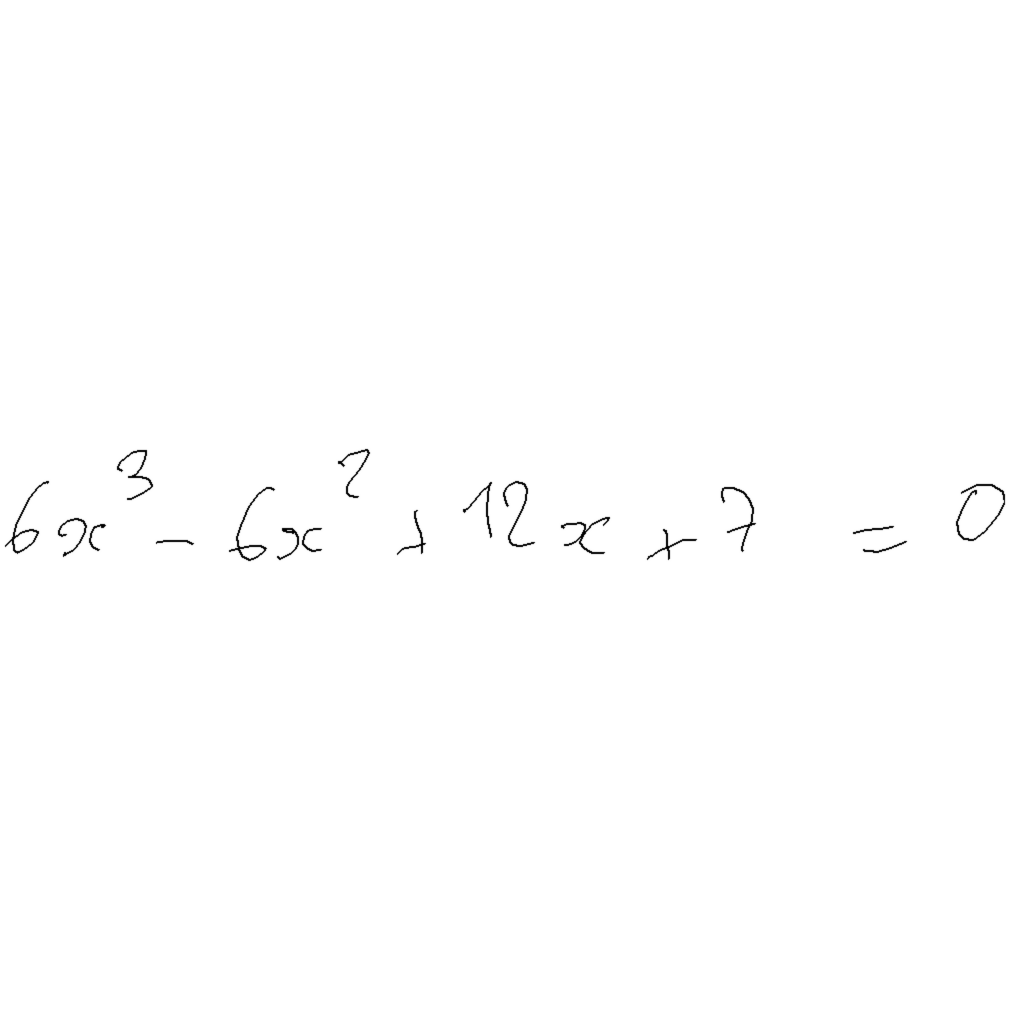 6x³ - 6x² + 12x + 7 = 0